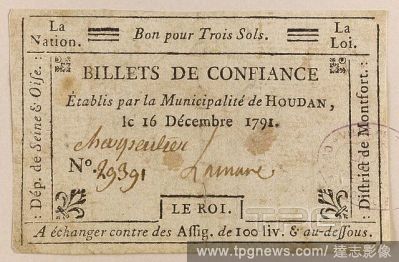 La Nation.
Bon pour Trois Sols.
La Loi.
BILLETS DE CONFIANCE
Établis par la Municipalité de HOUDAN,
le 16 Décembre 1791.
Charpentier
N.o 29391
Lamare
LE ROI.
A échanger contre des Assig. de 100 liv. & au-dessous.
Dép. de Seine & Oise.
District de Montfort.
www.tpgnews.com / 達志影像